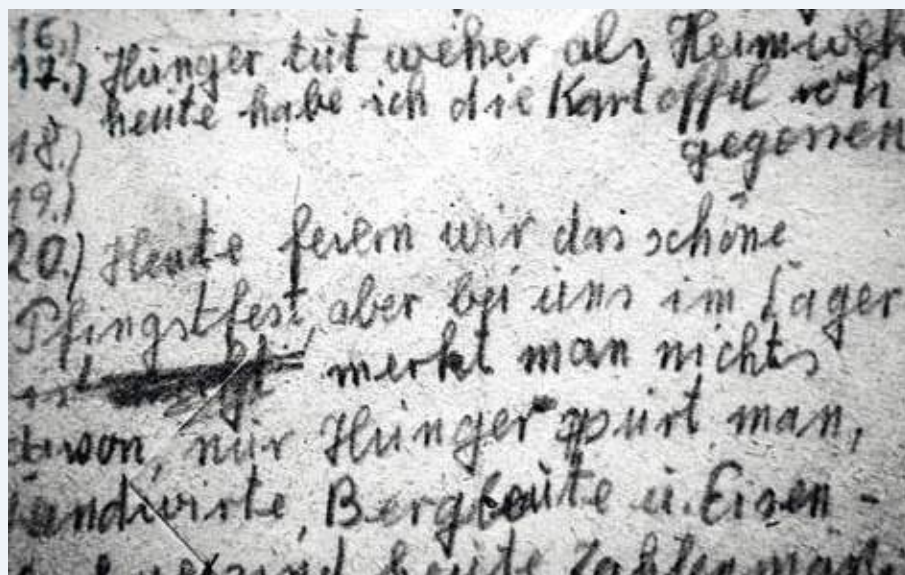 16.)
17.) Hunger tut weher als Heimweh
heute habe ich die Kartoffel roh
18.) gegessen
19.)
20.) Heute feiern wir das schöne
Pfingstfest aber bei uns im Lager
ist merkt man nichts
nur Hunger spürt man,
Landwirte, Bergleute u. Eisen-
heute